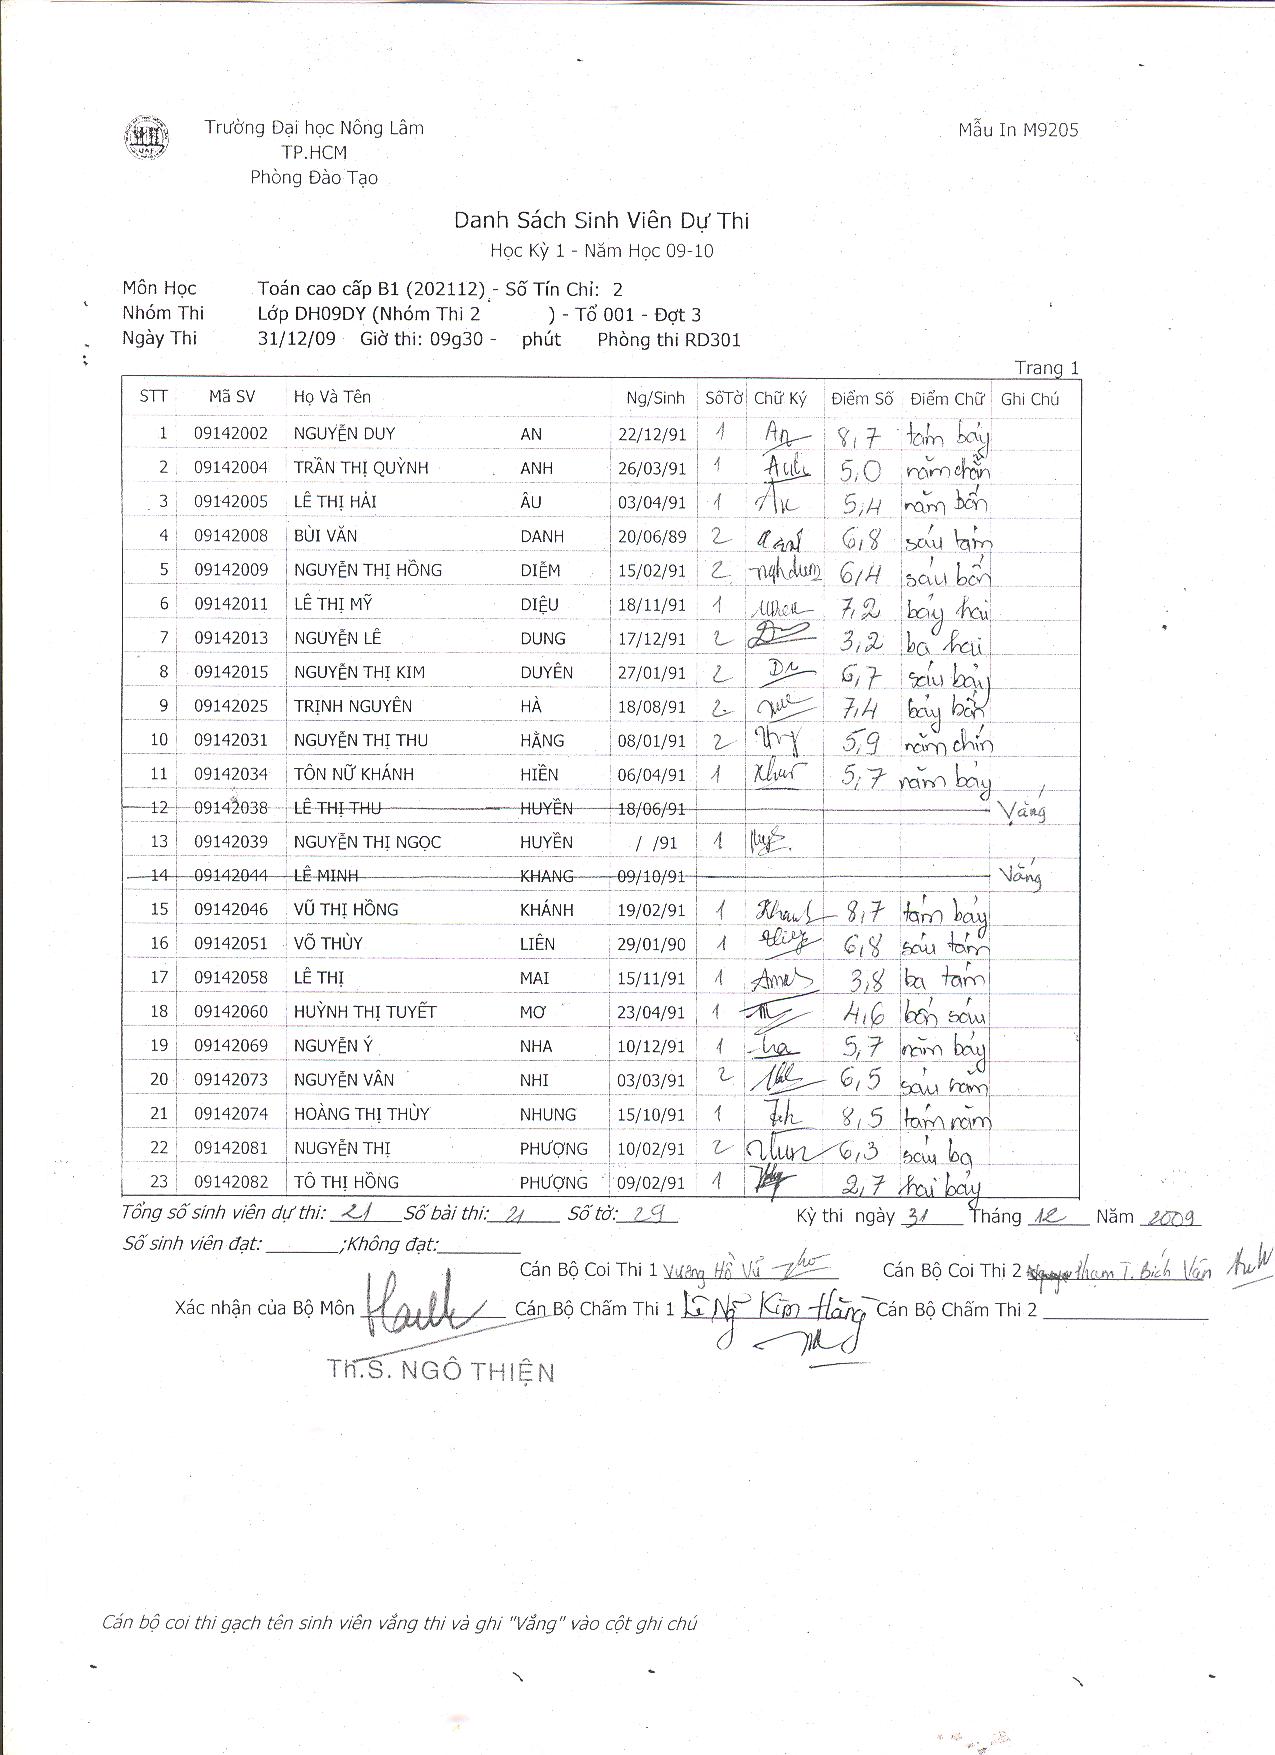 Trường Đại học Nông Lâm
TP.HCM
Phòng Đào Tạo
Mẫu In M9205
Danh Sách Sinh Viên Dự Thi
Học Kỳ 1 - Năm Học 09-10
Môn Học Toán cao cấp B1 (202112) - Số Tín Chỉ: 2
Nhóm Thi Lớp DH09DY (Nhóm Thi 2 ) - Tổ 001 - Đợt 3
Ngày Thi 31/12/09 Giờ thi: 09g30 - phút Phòng thi RD301
Trang 1
STT Mã SV Họ Và Tên Ng/Sinh SốTờ Chữ Ký Điểm Số Điểm Chữ Ghi Chú
1 09142002 NGUYỄN DUY AN 22/12/91 1 An 8,7 tám bảy
2 09142004 TRẦN THỊ QUỲNH ANH 26/03/91 1 5,0 năm chẵn
3 09142005 LÊ THỊ HẢI ÂU 03/04/91 1 5,4 năm bốn
4 09142008 BÙI VĂN DANH 20/06/89 2 6,8 sáu tám
5 09142009 NGUYỄN THỊ HỒNG DIỄM 15/02/91 2 6,4 sáu bốn
6 09142011 LÊ THỊ MỸ DIỆU 18/11/91 1 7,2 bảy hai
7 09142013 NGUYỄN LÊ DUNG 17/12/91 2 3,2 ba hai
8 09142015 NGUYỄN THỊ KIM DUYÊN 27/01/91 2 6,7 sáu bảy
9 09142025 TRỊNH NGUYÊN HÀ 18/08/91 2 7,4 bảy bốn
10 09142031 NGUYỄN THỊ THU HẰNG 08/01/91 2 5,9 năm chín
11 09142034 TÔN NỮ KHÁNH HIỀN 06/04/91 1 5,7 năm bảy
12 09142038 LÊ THỊ THU HUYỀN 18/06/91 Vắng
13 09142039 NGUYỄN THỊ NGỌC HUYỀN / /91 1
14 09142044 LÊ MINH KHANG 09/10/91 Vắng
15 09142046 VŨ THỊ HỒNG KHÁNH 19/02/91 1 8,7 tám bảy
16 09142051 VÕ THÙY LIÊN 29/01/90 1 6,8 sáu tám
17 09142058 LÊ THỊ MAI 15/11/91 1 3,8 ba tám
18 09142060 HUỲNH THỊ TUYẾT MƠ 23/04/91 1 4,6 bốn sáu
19 09142069 NGUYỄN Ý NHA 10/12/91 1 5,7 năm bảy
20 09142073 NGUYỄN VÂN NHI 03/03/91 2 6,5 sáu năm
21 09142074 HOÀNG THỊ THÙY NHUNG 15/10/91 1 8,5 tám năm
22 09142081 NUGYỄN THỊ PHƯỢNG 10/02/91 2 6,3 sáu ba
23 09142082 TÔ THỊ HỒNG PHƯỢNG 09/02/91 1 2,7 hai bảy
Tổng số sinh viên dự thi: 21 Số bài thi: 21 Số tờ: 29 Kỳ thi ngày 31 Tháng 12 Năm 2009
Số sinh viên đạt: ;Không đạt:
Cán Bộ Coi Thi 1 Vương Hồ Vũ Cán Bộ Coi Thi 2 Phạm T. Bích Vân
Xác nhận của Bộ Môn Cán Bộ Chấm Thi 1 Lê Ng Kim Hằng Cán Bộ Chấm Thi 2
Th.S. NGÔ THIỆN
Cán bộ coi thi gạch tên sinh viên vắng thi và ghi "Vắng" vào cột ghi chú